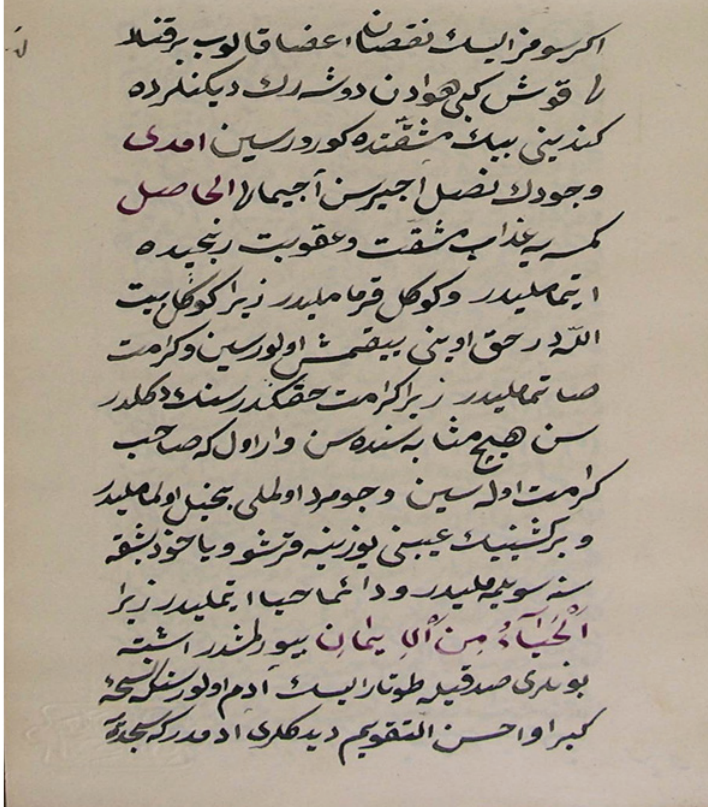 اكر سومزايسك نقصان اعضا قالوب بر قنادلا
لا قوش كبى هوادن دوشه رك ديكنلرده
كندينى بيك مشقتده كورورسين امدى
وجودك نصل آجيرسن آجيمالا الحاصل
كمسه يه عذاب مشقت وعقوبت رنجيده
ايتماميليدر وكوكل قرماميليدر زيرا كوكل بيت
اللّٰه در حق اوينى ييقمش اولورسين وكرامت
صاتماميليدر زيرا كرامت حقكدر سنك دكلدر
سن هيچ مثابه سنده سن وار اول كه صاحب
كرامت اوله سين وجومرد اولملى بخيل اولماميليدر
وبر كشينيك عيبنى يوزينه قرشو وياخود بشقه
سنه سويليه مليدر ودائما حيا ايتمليدر زيرا
اَلْحَيَآءُ مِنَ ٱلْاِيمَانِ بيورلمشدر اشته
بونلرى صدقيله طوتارايسك آدم اولورسنكه نسخهٔ
كبرا واحسن التقويم ديدكلرى آدمدر كه سجدهٔ